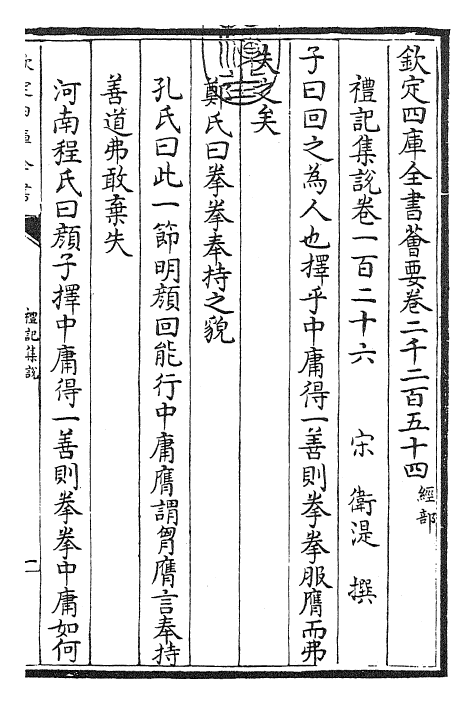 欽定四庫全書薈要卷二千二百五十四 經部
禮記集說卷一百二十六 宋 衛湜 撰
子曰回之為人也擇乎中庸得一善則拳拳服膺而弗
失之矣
鄭氏曰拳拳奉持之貌
孔氏曰此一節明顏回能行中庸膺謂胷膺言奉持
善道弗敢棄失
河南程氏曰顏子擇中庸得一善則拳拳中庸如何
禮記集說